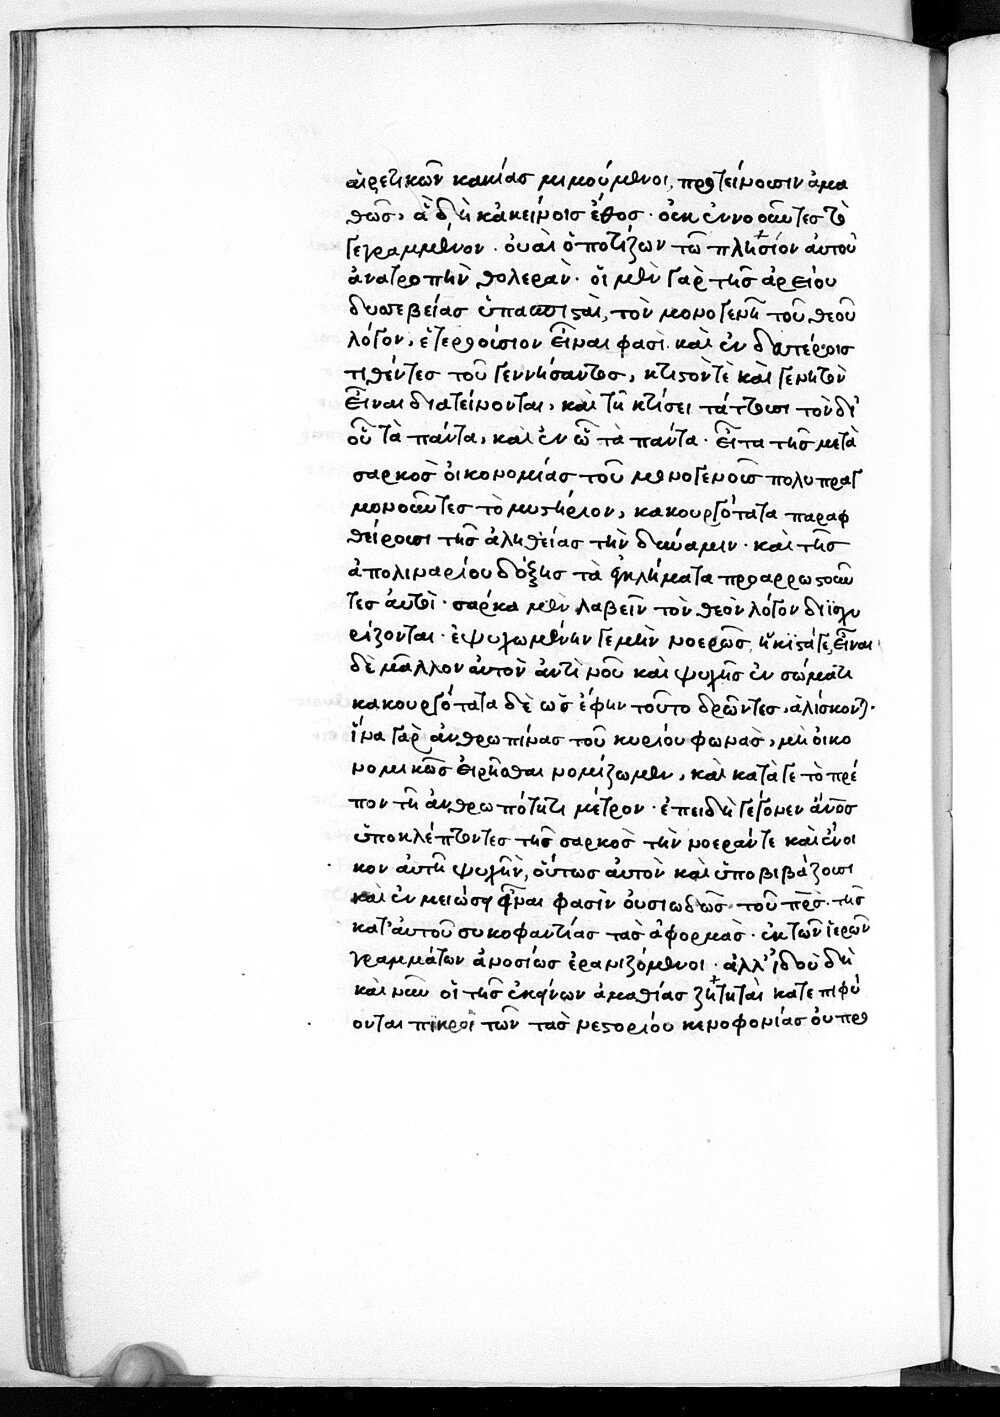 αἱρετικῶν κακίας μιμούμενοι, προτείνουσιν ἀμα
θῶς, ἃ δὴ κἀκείνοις ἔθος · οὐκ ἐννοοῦντες τὸ
γεγραμμένον · οὐαὶ ὁ ποτίζων τῶ πλησίον αὐτοῦ
ἀνατροπὴν θολεράν · οἱ μὲν γὰρ τῆς ἀρείου
δυσσεβείας ὑπασπισταὶ, τὸν μονογενῆ τοῦ θεοῦ
λόγον, ἑτεροούσιον εἶναι φασὶ · καὶ ἐν δευτέροις
τιθέντες τοῦ γεννήσαντος, κτιστόν τὲ καὶ γενητὸν
εἶναι διατείνονται, καὶ τῆ κτίσει τάττουσι τὸν δι'
οὗ τὰ πάντα, καὶ ἐν ὧ τὰ πάντα · εἶτα τῆς μετὰ
σαρκὸς οἰκονομίας τοῦ μονογενοῦς πολυπραγ
μονοῦντες τὸ μυστήριον, κακουργότατα παραφ
θείρουσι τῆς ἀληθείας τὴν δύναμιν · καὶ τῆς
ἀπολιναρίου δόξης τὰ ἐγκλήματα προαρρωστοῦν
τες αὐτοὶ · σάρκα μὲν λαβεῖν τὸν θεὸν λόγον διϊσχυ
ρίζονται · ἐψυχωμένην γε μὴν νοερῶς, ἥκιστάγε, εἶναι
δὲ μᾶλλον αὐτὸν ἀντὶ νοῦ καὶ ψυχῆς ἐν σώματι
κακουργότατα δὲ ὡς ἔφην τοῦτο δρῶντες, ἁλίσκονται ·
ἵνα γὰρ ἀνθρωπίνας τοῦ κυρίου φωνὰς, μὴ οἰκο
νομικῶς εἰρῆσθαι νομίζωμεν, καὶ κατά γε τὸ πρέ
πον τῆ ἀνθρωπότητι μέτρον · ἐπειδὴ γέγονεν ἄνος
ὑποκλέπτοντες τῆς σαρκὸς τὴν νοεράν τε καὶ ἔνοι
κον αὐτῆ ψυχὴν, οὕτως αὐτὸν καὶ ὑποβιβάζουσι
καὶ ἐν μειώσει εἶναι φασὶν οὐσιωδῶς τοῦ πρς · τῆς
κατ' αὐτοῦ συκοφαντίας τὰς ἀφορμὰς · ἐκ τῶν ἱερῶν
γραμμάτων ἀνοσίως ἐρανιζόμενοι · ἀλλ' ἰδοὺ δὴ
καὶ νῦν οἱ τῆς ἐκείνων ἀμαθίας ζητηταὶ κατεπιφύ
ονται πικροὶ τῶν τὰς νεστορίου κενοφονίας οὐ προ